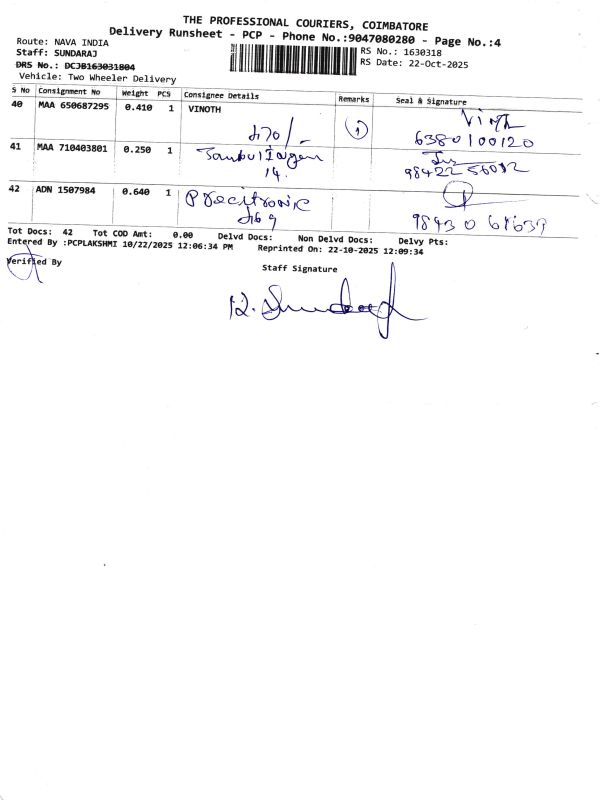 THE PROFESSIONAL COURIERS, COIMBATORE
Delivery Runsheet - PCP - Phone No.:9047080280 - Page No.:4
Route: NAVA INDIA
Staff: SUNDARAJ
DRS No.: DCJB163031804
Vehicle: Two Wheeler Delivery
RS No.: 1630318
RS Date: 22-Oct-2025
S No Consignment No Weight PCS Consignee Details Remarks Seal & Signature
40 MAA 650687295 0.410 1 VINOTH
470/-
1
6380100120
41 MAA 710403801 0.250 1
14.
42 ADN 1507984 0.640 1
Tot Docs: 42 Tot COD Amt: 0.00 Delvd Docs: Non Delvd Docs: Delvy Pts:
Entered By :PCPLAKSHMI 10/22/2025 12:06:34 PM Reprinted On: 22-10-2025 12:09:34
Verified By
Staff Signature